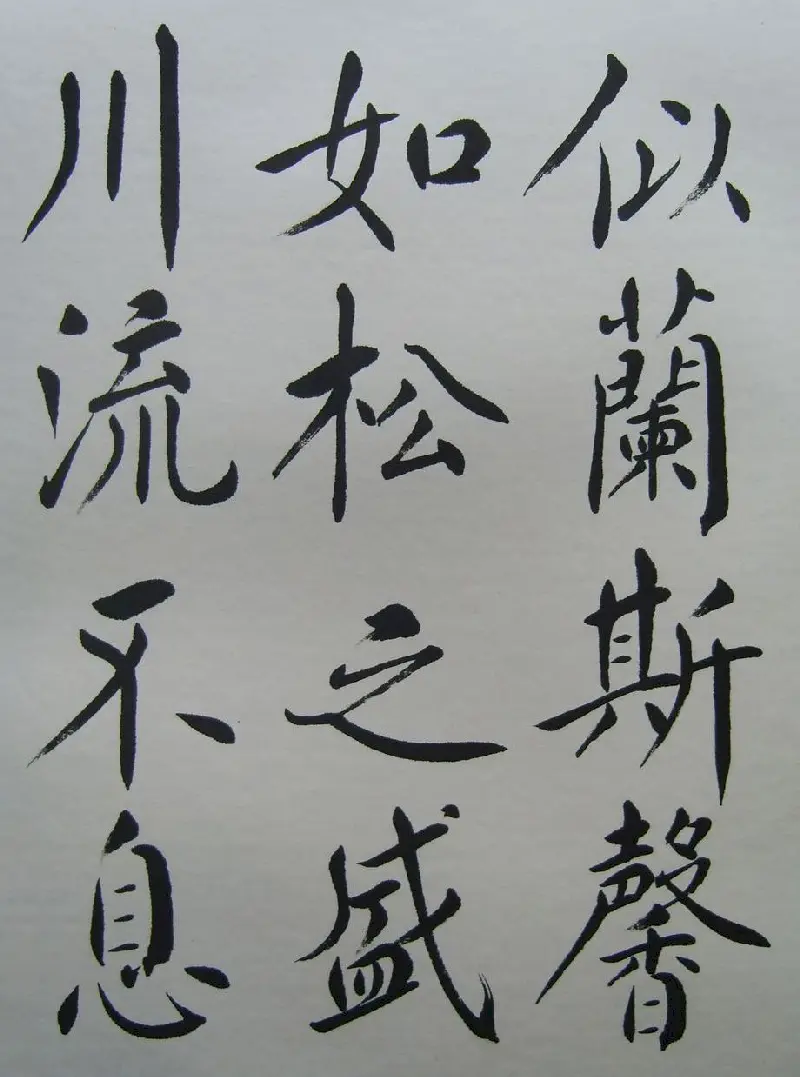 似蘭斯馨
如松之盛
川流不息